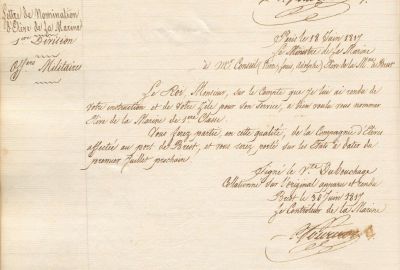 Lettre de Nomination
d'Elève de la Marine
1ere Division
Offers Militaires
Paris le 18 Juin 1817
Le Ministre de la Marine
à Mr. Conseil (Jean, Louis, Adolphe) Elève de la Mne de Brest
Le Roi, Monsieur, sur le Compte que je lui ai rendu de
votre instruction et de votre zèle pour son service, a bien voulu vous nommer
Elève de la Marine de 1ere Classe.
Vous ferez partie, en cette qualité, de la Compagnie d'Elèves
affectée au port de Brest, et vous serez porté sur les Etats à dater du
premier Juillet prochain
Signé le Vte Dubouchage
Collationné sur l'original apparu et rendu
Brest le 30 Juin 1817
Le Controleur de la Marine